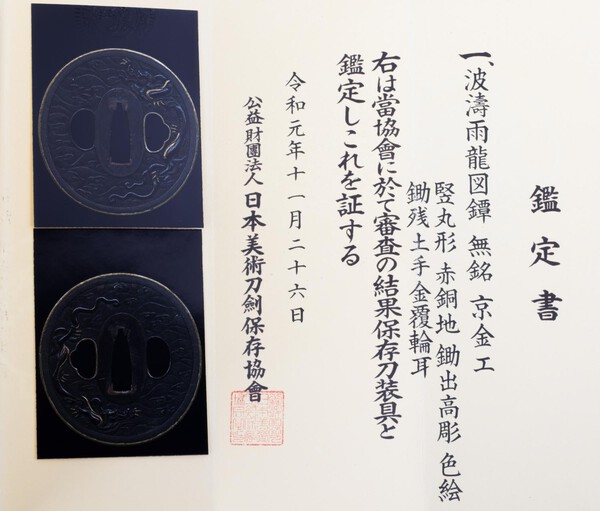 鑑定書
一、波濤雨龍図鐔 無銘 京金工
竪丸形 赤銅地 鋤出高彫 色絵
鋤残土手 金覆輪耳
右は當協會に於て審査の結果保存刀装具と
鑑定しこれを証する
令和元年十一月二十六日
公益財團法人 日本美術刀劍保存協會